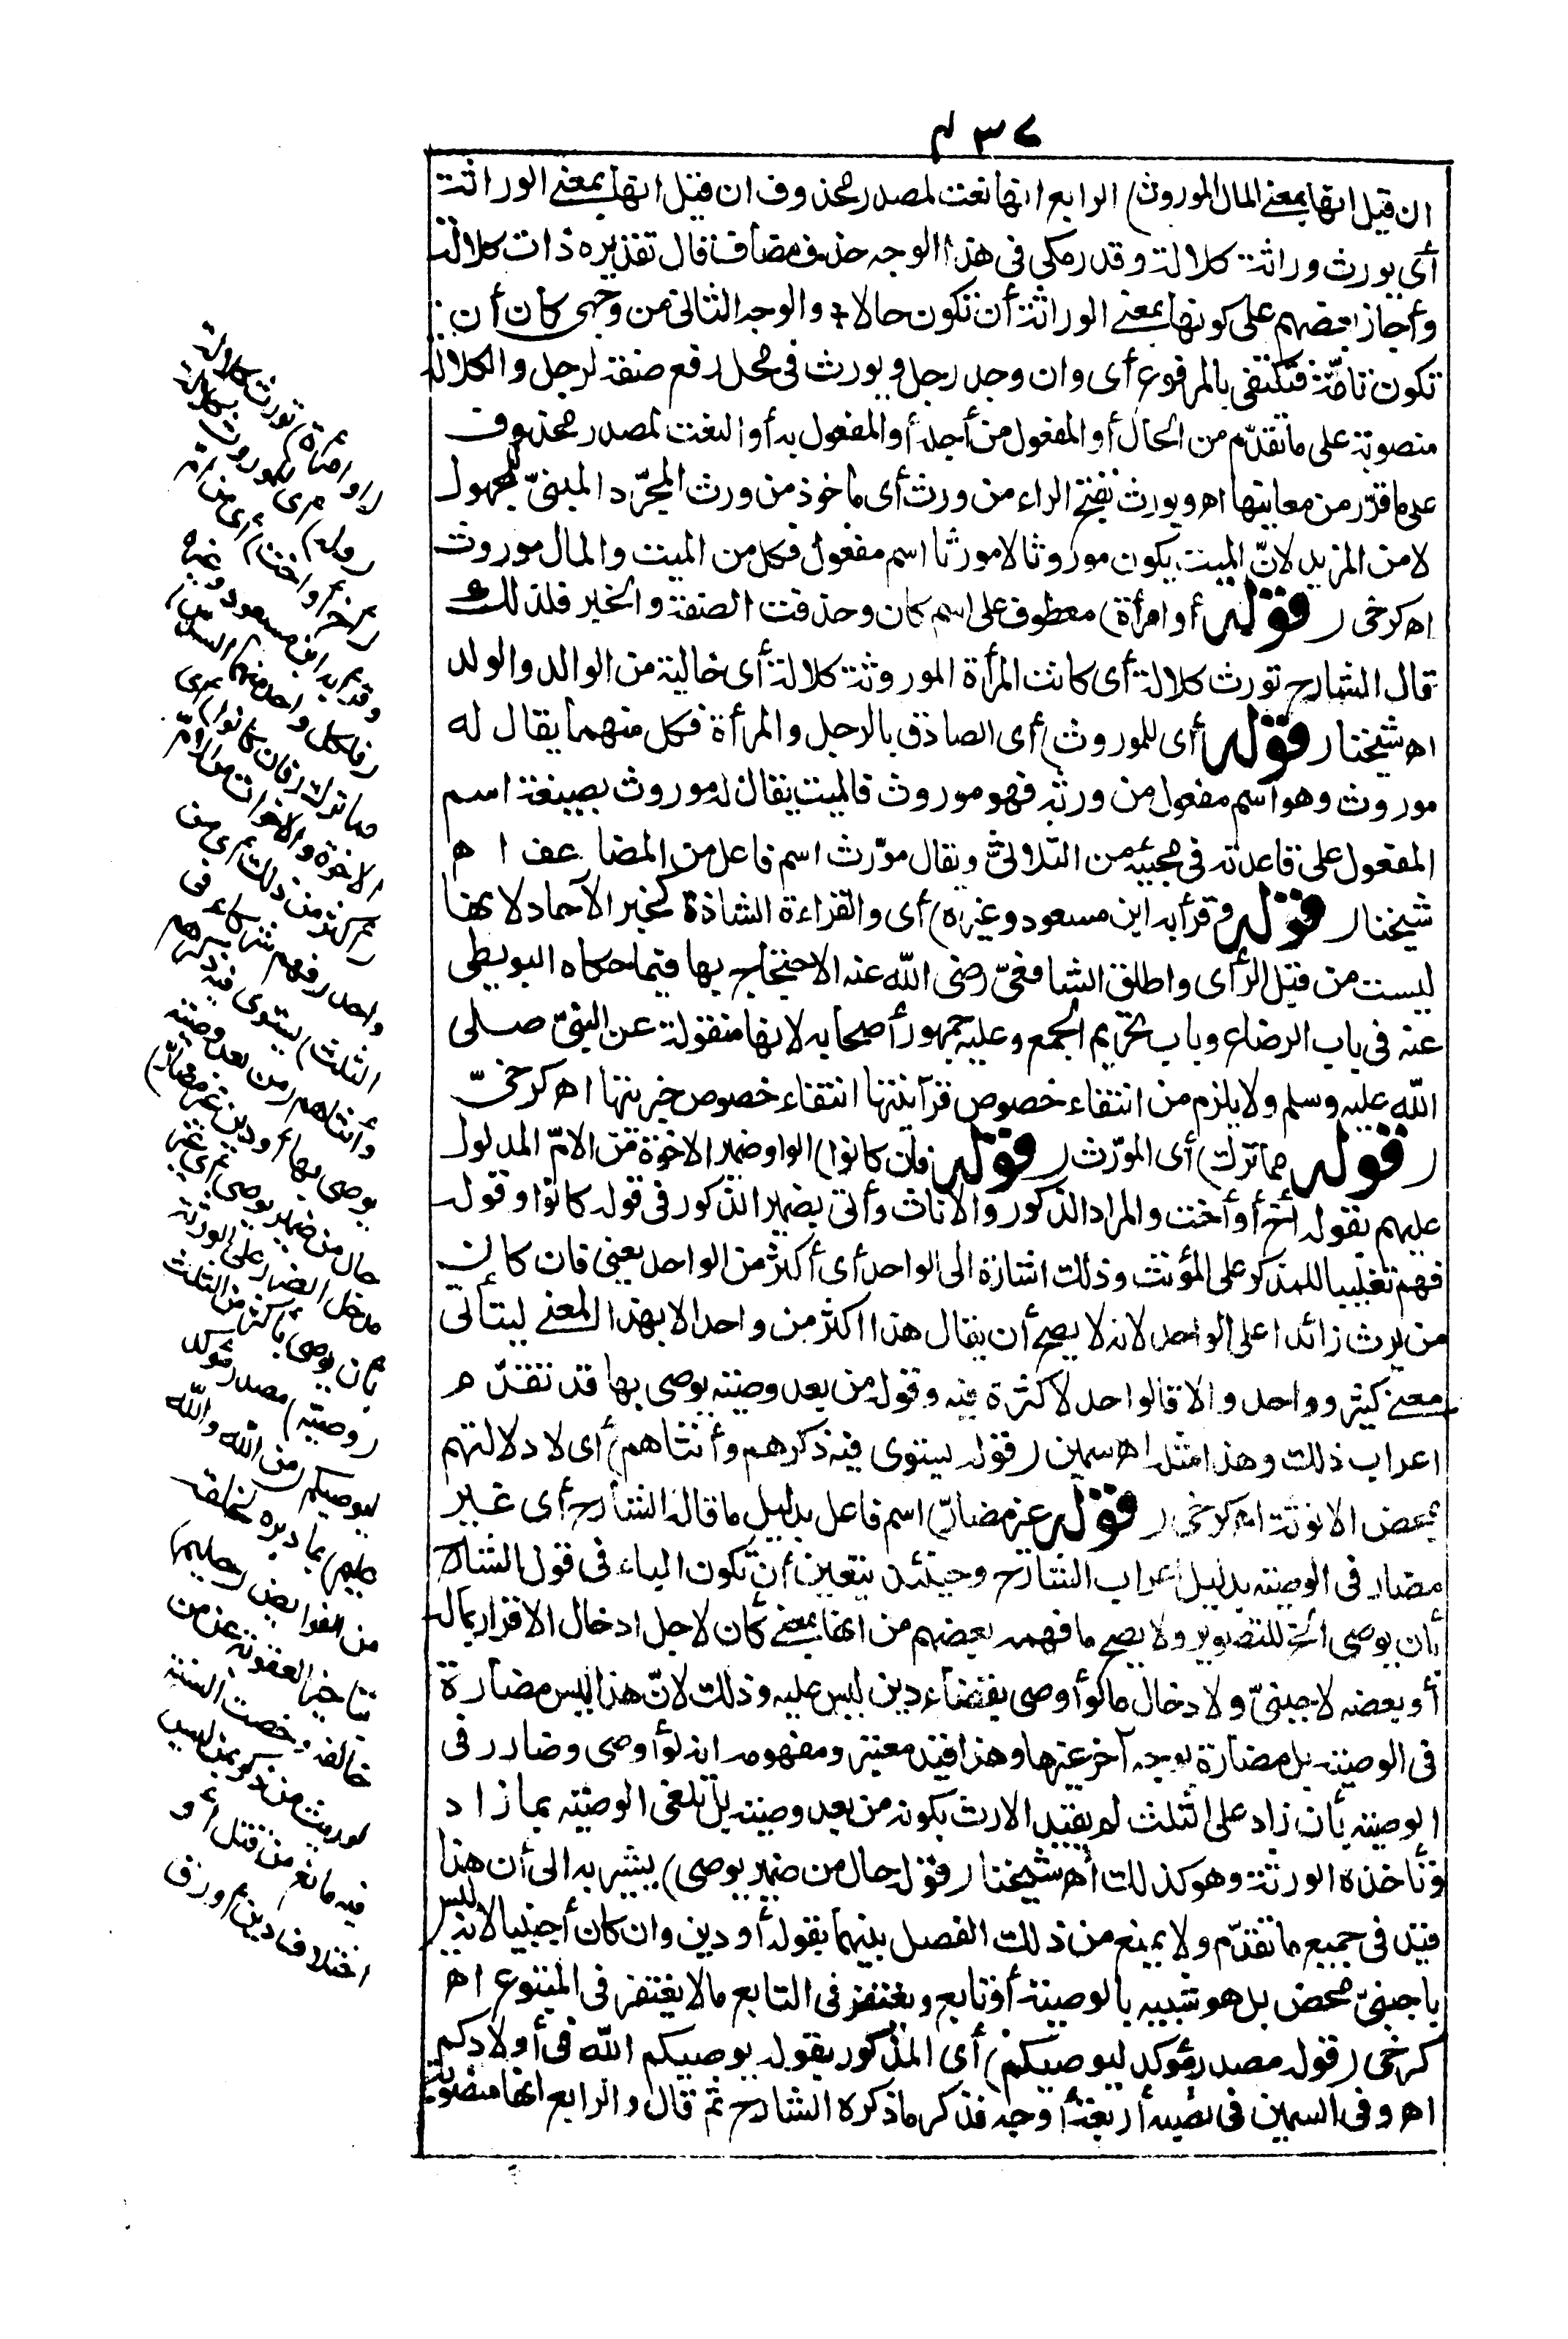 ٤٣٧
ان قيل انها بمعنى المال الموروث) الرابع انها نعت لمصدر محذوف ان قيل انها بمعنى الوراثة
أى يورث وراثة كلالة وقدر مكى فى هذا الوجه حذف مضاف فقال تقديره ذات كلالة
وأجاز بعضهم على كونها بمعنى الوراثة أن تكون حالا والوجه الثانى من وجهى كان أن
تكون تامّة فتكتفى بالمرفوع أى وان وجد رجل ويورث فى محل رفع صفة لرجل والكلالة
منصوبة على ما تقدّم من الحال أو المفعول من أجله أو المفعول به أو النعت لمصدر محذوف
على ما قرّر من معانيها اه ويورث بفتح الراء من ورث أى مأخوذ من ورث المجرّد المبنىّ للمجهول
لا من المزيد لانّ الميت يكون موروثا لا مورثا اسم مفعول فكل من الميت والمال موروث
اه كرخى (قوله أو امرأة) معطوف على اسم كان وحذفت الصفة والخبر فلذلك
قال الشارح تورث كلالة أى كانت المرأة الموروثة كلالة أى خالية من الوالد والولد
اه شيخنا (قوله أى للموروث) أى الصادق بالرجل والمرأة فكل منهما يقال له
موروث وهو اسم مفعول من ورثه فهو موروث فالميت يقال له موروث بصيغة اسم
المفعول على قاعدته فى مجيئه من الثلاثىّ ويقال مورّث اسم فاعل من المضاعف اه
شيخنا (قوله وقرأ به ابن مسعود وغيره) أى والقراءة الشاذة كخبر الآحاد لانها
ليست من قبل الرأى واطلق الشافعىّ رضى الله عنه الاحتجاج بها فيما حكاه البويطى
عنه فى باب الرضاع وباب تحريم الجمع وعليه جمهور أصحابه لانها منقولة عن النبىّ صلى
الله عليه وسلم ولا يلزم من انتفاء خصوص قرآنيتها انتفاء خصوص خبريتها اه كرخىّ
(قوله مما ترك) أى المورّث (قوله فان كانوا) الواو ضمير الاخوة من الامّ المدلول
عليهم بقوله أخ أو أخت والمراد الذكور والاناث وأتى بضمير الذكور فى قوله كانوا وقوله
فهم تغليبا للمذكر على المؤنث وذلك اشارة الى الواحد أى أكثر من الواحد يعنى فان كان
من يرث زائدا على الواحد لانه لا يصح أن يقال هذا اكثر من واحد الا بهذا المعنى لتنافى
معنى كثير وواحد والا فالواحد لا كثرة فيه وقوله من بعد وصية يوصى بها قد تقدّم
اعراب ذلك وهذا مثله اه سمين (قوله يستوى فيه ذكرهم وأنثاهم) أى لادلائهم
بمحض الانوثة اه كرخى (قوله غير مضارّ) اسم فاعل بدليل ما قاله الشارح أى غير
مضار فى الوصية بدليل اعراب الشارح وحينئذ يتعين أن تكون الباء فى قول الشارح
بأن يوصى الخ للتصوير ولا يصح ما فهمه بعضهم من انها بمعنى كأن لاجل ادخال الاقرار بماله
أو بعضه لاجنبىّ ولادخال ما لو أوصى بقضاء دين ليس عليه وذلك لانّ هذا ليس مضارة
فى الوصية بل مضارة بوجه آخر غيرها وهذا قيد معتبر ومفهومه انه لو أوصى وضارر فى
الوصية بأن زاد على الثلث لم يقيد الارث بكونه من بعد وصية بل تلغى الوصية بما زاد
وتأخذه الورثة وهو كذلك اه شيخنا (قوله حال من ضمير يوصى) يشير به الى أن هذا
قيد فى جميع ما تقدّم ولا يمنع من ذلك الفصل بينهما بقوله أو دين وان كان أجنبيا لانه ليس
بأجنبىّ محض بل هو شبيه بالوصية أو تابع ويغتفر فى التابع ما لا يغتفر فى المتبوع اه
كرخى (قوله مصدر مؤكد ليوصيكم) أى المذكور بقوله يوصيكم الله فى أولادكم
اه وفى السمين فى نصبه أربعة أوجه فذكر ما ذكره الشارح ثم قال والرابع انها منصوبة
(أو امرأة) تورث كلالة
(وله) أى للموروث كلالة
(أخ أو أخت) أى من أمّ
وقرأ به ابن مسعود وغيره
(فلكل واحد منهما السدس)
مما ترك (فان كانوا) أى
الاخوة والاخوات من الامّ
(أكثر من ذلك) أى من
واحد (فهم شركاء فى
الثلث) يستوى فيه ذكرهم
وأنثاهم (من بعد وصية
يوصى بها أو دين غير مضارّ)
حال من ضمير يوصى أى غير
مدخل الضرر على الورثة
بأن يوصى بأكثر من الثلث
(وصية) مصدر مؤكد
ليوصيكم (من الله والله
عليم) بما دبره لخلقه
من الفرائض (حليم)
بتأخير العقوبة عن من
خالفه وخصت السنة
توريث من ذكر بمن ليس
فيه مانع من قتل أو
اختلاف دين أو رق